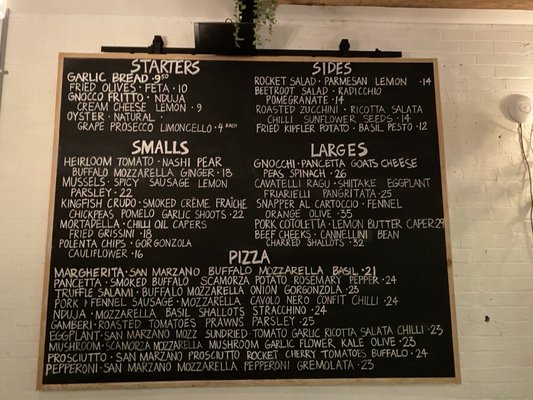 STARTERS
GARLIC BREAD · 9.50
FRIED OLIVES · FETA · 10
GNOCCO FRITTO · NDUJA
CREAM CHEESE LEMON · 9
OYSTER · NATURAL ·
GRAPE PROSECCO LIMONCELLO · 4 EACH
SIDES
ROCKET SALAD · PARMESAN LEMON · 14
BEETROOT SALAD · RADICCHIO
POMEGRANATE · 14
ROASTED ZUCCHINI · RICOTTA SALATA
CHILLI SUNFLOWER SEEDS · 14
FRIED KIFFLER POTATO · BASIL PESTO · 12
SMALLS
HEIRLOOM TOMATO · NASHI PEAR
BUFFALO MOZZARELLA GINGER · 18
MUSSELS · SPICY SAUSAGE LEMON
PARSLEY · 22
KINGFISH CRUDO · SMOKED CRÈME FRAÎCHE
CHICKPEAS POMELO GARLIC SHOOTS · 22
MORTADELLA · CHILLI OIL CAPERS
FRIED GRISSINI · 18
POLENTA CHIPS · GORGONZOLA
CAULIFLOWER · 16
LARGES
GNOCCHI · PANCETTA GOATS CHEESE
PEAS SPINACH · 26
CAVATELLI RAGU · SHIITAKE EGGPLANT
FRIARIELLI PANGRITATA · 25
SNAPPER AL CARTOCCIO · FENNEL
ORANGE OLIVE · 35
PORK COTOLETTA · LEMON BUTTER CAPER · 29
BEEF CHEEKS · CANNELLINI BEAN
CHARRED SHALLOTS · 32
PIZZA
MARGHERITA · SAN MARZANO BUFFALO MOZZARELLA BASIL · 21
PANCETTA · SMOKED BUFFALO SCAMORZA POTATO ROSEMARY PEPPER · 24
TRUFFLE SALAMI · BUFFALO MOZZARELLA ONION GORGONZOLA · 23
PORK & FENNEL SAUSAGE · MOZZARELLA CAVOLO NERO CONFIT CHILLI · 24
NDUJA · MOZZARELLA BASIL SHALLOTS STRACCHINO · 24
GAMBERI · ROASTED TOMATOES PRAWNS PARSLEY · 25
EGGPLANT · SAN MARZANO MOZZ SUNDRIED TOMATO GARLIC RICOTTA SALATA CHILLI · 23
MUSHROOM · SCAMORZA MOZZARELLA MUSHROOM GARLIC FLOWER KALE OLIVE · 23
PROSCIUTTO · SAN MARZANO PROSCIUTTO ROCKET CHERRY TOMATOES BUFFALO · 24
PEPPERONI · SAN MARZANO MOZZARELLA PEPPERONI GREMOLATA · 23